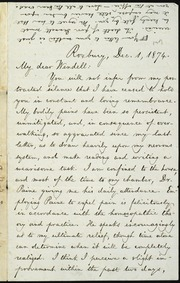 Roxbury, Dec. 1, 1874.
My dear Wendell:
You will not infer from my pro-
tracted silence that I have ceased to hold
you in constant and loving remembrance.
My bodily pains have been so persistent,
unmitigated, and, in consequence of over-
walking, so aggravated since my last
letter, as to draw heavily upon my nervous
system, and make reading and writing a
wearisome task. I am confined to the house,
and most of the time to my chamber. Dr.
Paine gives me his daily attendance. Em-
ploying Paine to expel pain is felicitously
in accordance with the homœopathic the-
ory and practice. He speaks encouragingly
as to my ultimate relief, though time alone
can determine when it will be completely
realized. I think I perceive a slight im-
provement within the past two days,